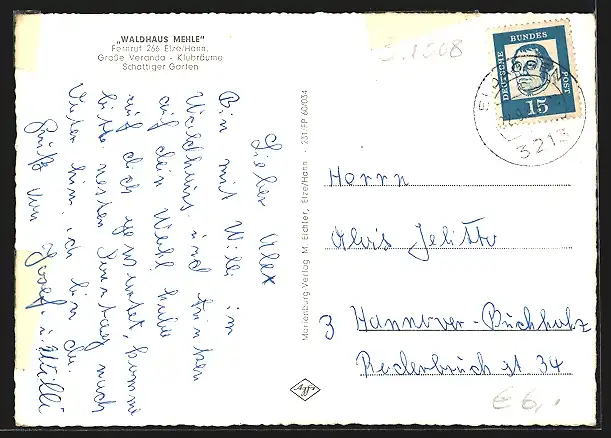 „WALDHAUS MEHLE"
Fernruf 266 Elze/Hann.
Große Veranda - Klubräume
Schattiger Garten
Lieber Alex
Bin mit Willi im
Waldhaus und trinken
auf dein Wohl habe
auf dich gewartet, komme
bitte nesten Sonntag nach
hir, ich bin da
Gruß von Josef. u Willi
Marienburg-Verlag M. Eichler, Elze/Hann - 231/FP 60/034
5.1508
DEUTSCHE BUNDESPOST
15
3213
Herrn
Alois Jelitto
3 Hannover-Buchholz
34
€ 6,.